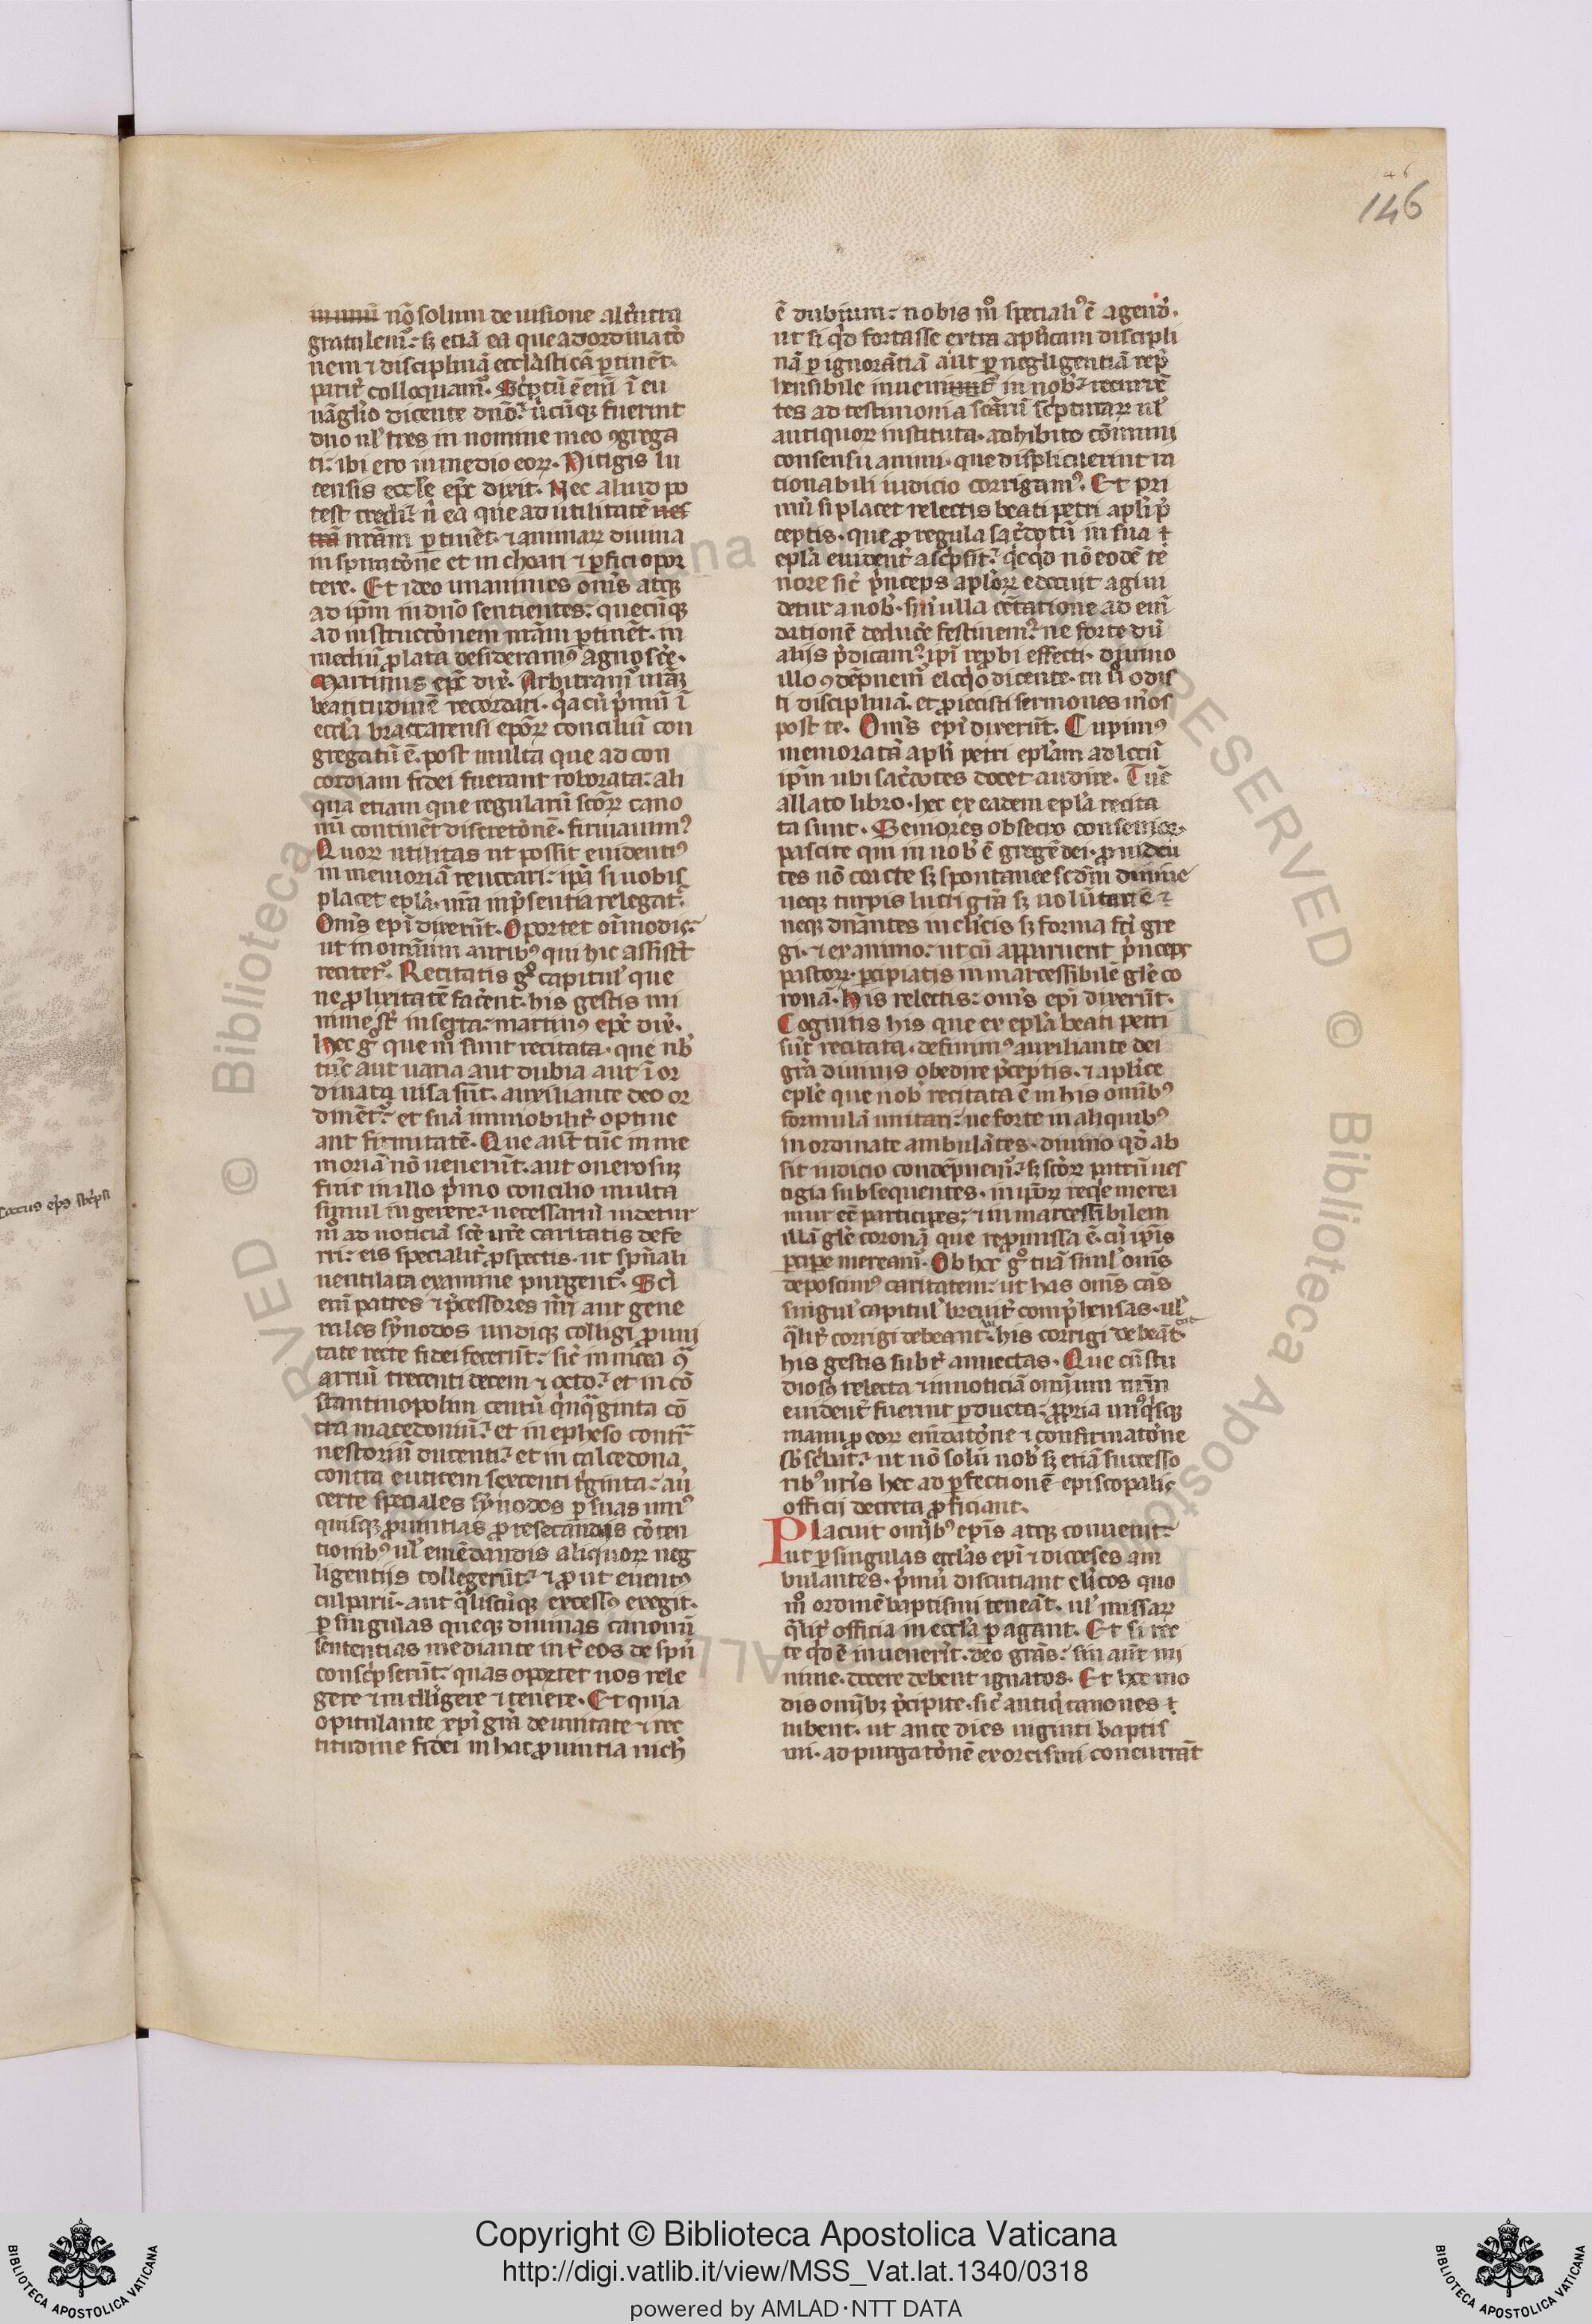 46
146
nō solum de uisione alterutra
gratulemᷣ: sꝫ etiā ea que ad ordinatō
nem ⁊ disciplinā ecclāsticā ꝑtinēt.
pariᷣ colloquamᷣ. Scͥptū ē enī ī eu
uāglīo dicente dnō: ubicūqꝫ fuerint
duo ul̓ tres in nomine meo ꝯgrega
ti: ibi ero in medio eoꝝ. Nitigis lu
censis eccl̄e epc̄ dixit. Nec aliud po
test credi: n̄ ea que ad utilitatē ues
trā nr̄am ꝑtinēt. ⁊ animaꝝ diuina
inspiratōne et inchoari ⁊ ꝑfici opor
tere. Et ideo unanimes om̄s atqꝫ
ad ip̄m in dn̄o sentientes: quecūqꝫ
ad instructōnem nr̄am ꝑtinēt. in
mediū ꝓlata desideramꝰ agnosce̓.
Martinus epc̄ dix̄. Arbitramᷣ ur̄aꝫ
beatitudinē recordari. qͣ cū pͥmū ī
eccl̄a braccarensi epōꝝ conciliū con
gregatū ē. post multa que ad con
cordiam fidei fuerant roborata: ali
qua etiam que regulariū scōꝝ cano
nū continēt discretōnē. firmauimꝰ
Quoꝝ utilitas ut possit euidentiꝰ
in memoriā reuocari: ip̄a si uobis
placet epl̄a. ur̄a in p̄sentia relegatᷣ.
Om̄s epī dixerūt. Oportet oīmodis:
ut in omnium auribꝰ qui hic assistt̄
recitetᷣ. Recitatis gͦ capitul̓ que
ne ꝓlixitatē facerent. his gestis mi
nime st̄ inserta: martinꝰ epc̄ dix̄.
Hec gͦ que m̊ sunt recitata. que nb̄
tūc aut uaria aut dubia aut īor
dinata uisa sūt. auxiliante deo or
dinētᷣ: et suā immobiliᷣ optine
ant firmitatē. Que aut̄ tūc in me
moriā nō uenerūt. aut onerosuꝫ
fuit in illo pͥmo concilio multa
simul ingerere: necessariū uidetur
m̊ ad noticiā sc̄e ur̄e caritatis defe
rri: eis specialiᷣ ꝓspectis. ut spūali
uentilata examine purgentᷣ. Scī
enī patres ⁊ p̄cessores nr̄i aut gene
rales sẏnodos undiqꝫ colligi ꝓ uni
tate recte fidei fecerūt: sic̄ in nicea ꝯͣ
arriū trecenti decem ⁊ octo: et in cō
stantinopolim centū qͥnqͣginta cō
tra macedoniū: et in epheso contͣ
nestoriū ducenti: et in calcedona
contra eutitem sexcenti tͥginta: aut
certe speciales sẏnodos ꝑ suas unꝰ
quisqꝫ ꝓuintias ꝓ resecandis cōten
tionibꝰ ul̓ emēdandis aliquoꝝ neg
ligentijs collegerūt: ⁊ ꝓut euentꝰ
culparū. aut qͣliscūqꝫ excessꝰ exegit.
ꝑ singulas queqꝫ diuinas canonū
sententias mediante int̄ eos dei spū
conscͥpserūt: quas oportet nos rele
gere ⁊ intelligere ⁊ tenere. Et quia
opitulante xpī grā de unitate ⁊ rec
titudine fidei in hac ꝓuintia nich̄
ē dubium: nobis m̊ specialiꝰ ē agend̓.
ut si qͥd fortasse extra aplicam discipli
nā ꝑ ignorātiā aut ꝑ negligentiā rep̄
hensibile inuenitᷣ in nob̄: recurrē
tes ad testimonia scāꝝ scͥpturaꝝ ul̓
antiquoꝝ instituta. adhibito cōmuni
consensu animi. que displicuerint ra
tionabili iudicio corrigamꝰ. Et pri
mū si placet relectis beati petri apl̄i p̄
ceptis. que ꝓ regula sac̄dotū in sua
epl̄a euidenᷣt ascͥpsit: qͥcqͥd nō eodē te
nore sic̄ pͥnceps apl̄oꝝ edocuit agi ui
detur a nob̄. sin̄ ulla cētatione ad em̄
dationē deduce̓ festinemꝰ: ne forte dū
alijs p̄dicamꝰ: ipī reꝓbi effecti. diuino
illo ꝯdēpnemᷣ eloqͥo dicente. tu ū odis
ti disciplinā. et ꝓiecisti sermones m̄os
post te. Om̄s epī dixerūt. Cupimꝰ
memoratā apl̄i petri epl̄am ad locū
ip̄m ubi sac̄dotes docet audire. Tūc
allato libro. hec ex eadem epl̄a recita
ta sunt. Seniores obsecro consenior.
pascite qui in uob̄ ē gregē dei. ꝓuiden
tes nō coacte sꝫ spontanee scdm̄ deum:
neqꝫ turpis lucri grā sꝫ uolūtarie ⁊
neqꝫ dnāntes in cl̄icis sꝫ forma fc̄i gre
gi. ⁊ ex animo: ut cū apparuerit pͥnceps
pastoꝝ. ꝑcipiatis inmarcessibilē glē co
ronā. His relectis: om̄s epī dixerūt.
Cognitis his que ex epl̄a beati petri
sūt recitata. definimꝰ auxiliante dei
grā diuinis obedire p̄ceptis. ⁊ aplīce
epl̄e que nob̄ recitata ē in his omībꝰ
formulā imitari: ne forte in aliquibꝰ
inordinate ambulātes. diuino qd̓ ab
sit iudicio condēpnemᷣ: sꝫ scōꝝ patrū ues
tigia subsequentes. in ip̄oꝝ reqͥe merea
mur eē participes: ⁊ inmarcessibilem
illā glē coronā que reꝓmissa ē. cū ip̄is
ꝑcipe̓ mereamᷣ. Ob hec gͦ tuā simul̓ om̄s
deposcimꝰ caritatem: ut has om̄s cās
singul̓ capitul̓ breuiᷣt comp̄hensas. ul̓
qͣliᷣt corrigi debeant: his corrigi debeāt.
his gestis subᷣt annectas. Que cū stu
diosꝰ relecta ⁊ in noticiā omnium nr̄m
euidenᷣt fuerint ꝑducta: ꝓpria unꝰqͥsqꝫ
manu ꝓ eoꝝ emdatōne ⁊ confirmatōne
sb̄scͥbat: ut nō solū nob̄ sꝫ etiā successo
ribꝰ nr̄is hec ad ꝑfectionē episcopalis
officij decreta ꝓficiant.
Placuit omībꝰ epīs atqꝫ conuenit:
ut ꝑ singulas eccl̄as epī ⁊ dioceses am
bulantes. pͥmū discutiant cl̄icos quo
m̊ ordinē baptismi teneāt. ul̓ missaꝝ
qͣliᷣt officia in eccl̄a ꝑagant. Et si rec
te qͥd ē inuenerīt. deo grās: sin aut̄ mi
nime. docere debent ignaros. Et hoc mo
dis omībꝫ p̄cipue. sic̄ antiqͥ canones
iubent. ut ante dies uiginti baptis
mi. ad purgatōnē exorcismi concurrāt
Copyright © Biblioteca Apostolica Vaticana
http://digi.vatlib.it/view/MSS_Vat.lat.1340/0318
powered by AMLAD·NTT DATA
BIBLIOTECA APOSTOLICA VATICANA
BIBLIOTECA APOSTOLICA VATICANA